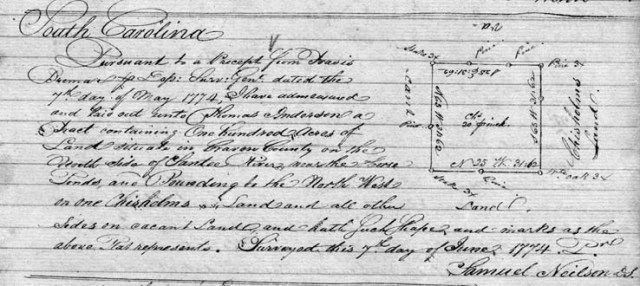 South Carolina
Pursuant to a Precept from
Dep: Surv: Genl. dated the
7th day of May 1774, I have admeasured
and laid out unto Thomas Anderson a
Tract containing One hundred Acres of
Land situate in Craven County on the
North side of Santee River, near the
and Bounding to the North West
on one Chisholms Land and all other
Sides on vacant Land and hath such Shape and marks as the
above Plat represents. Surveyed this 7th day of June 1774. Pr
Samuel Neilson D.S.
Vac
Pine
Pine
Stake 3x
Pine 3x
Vacant
Pine
Chs.
20 pr Inch
Chisholms
Land
Stake 3x
Pine
Land